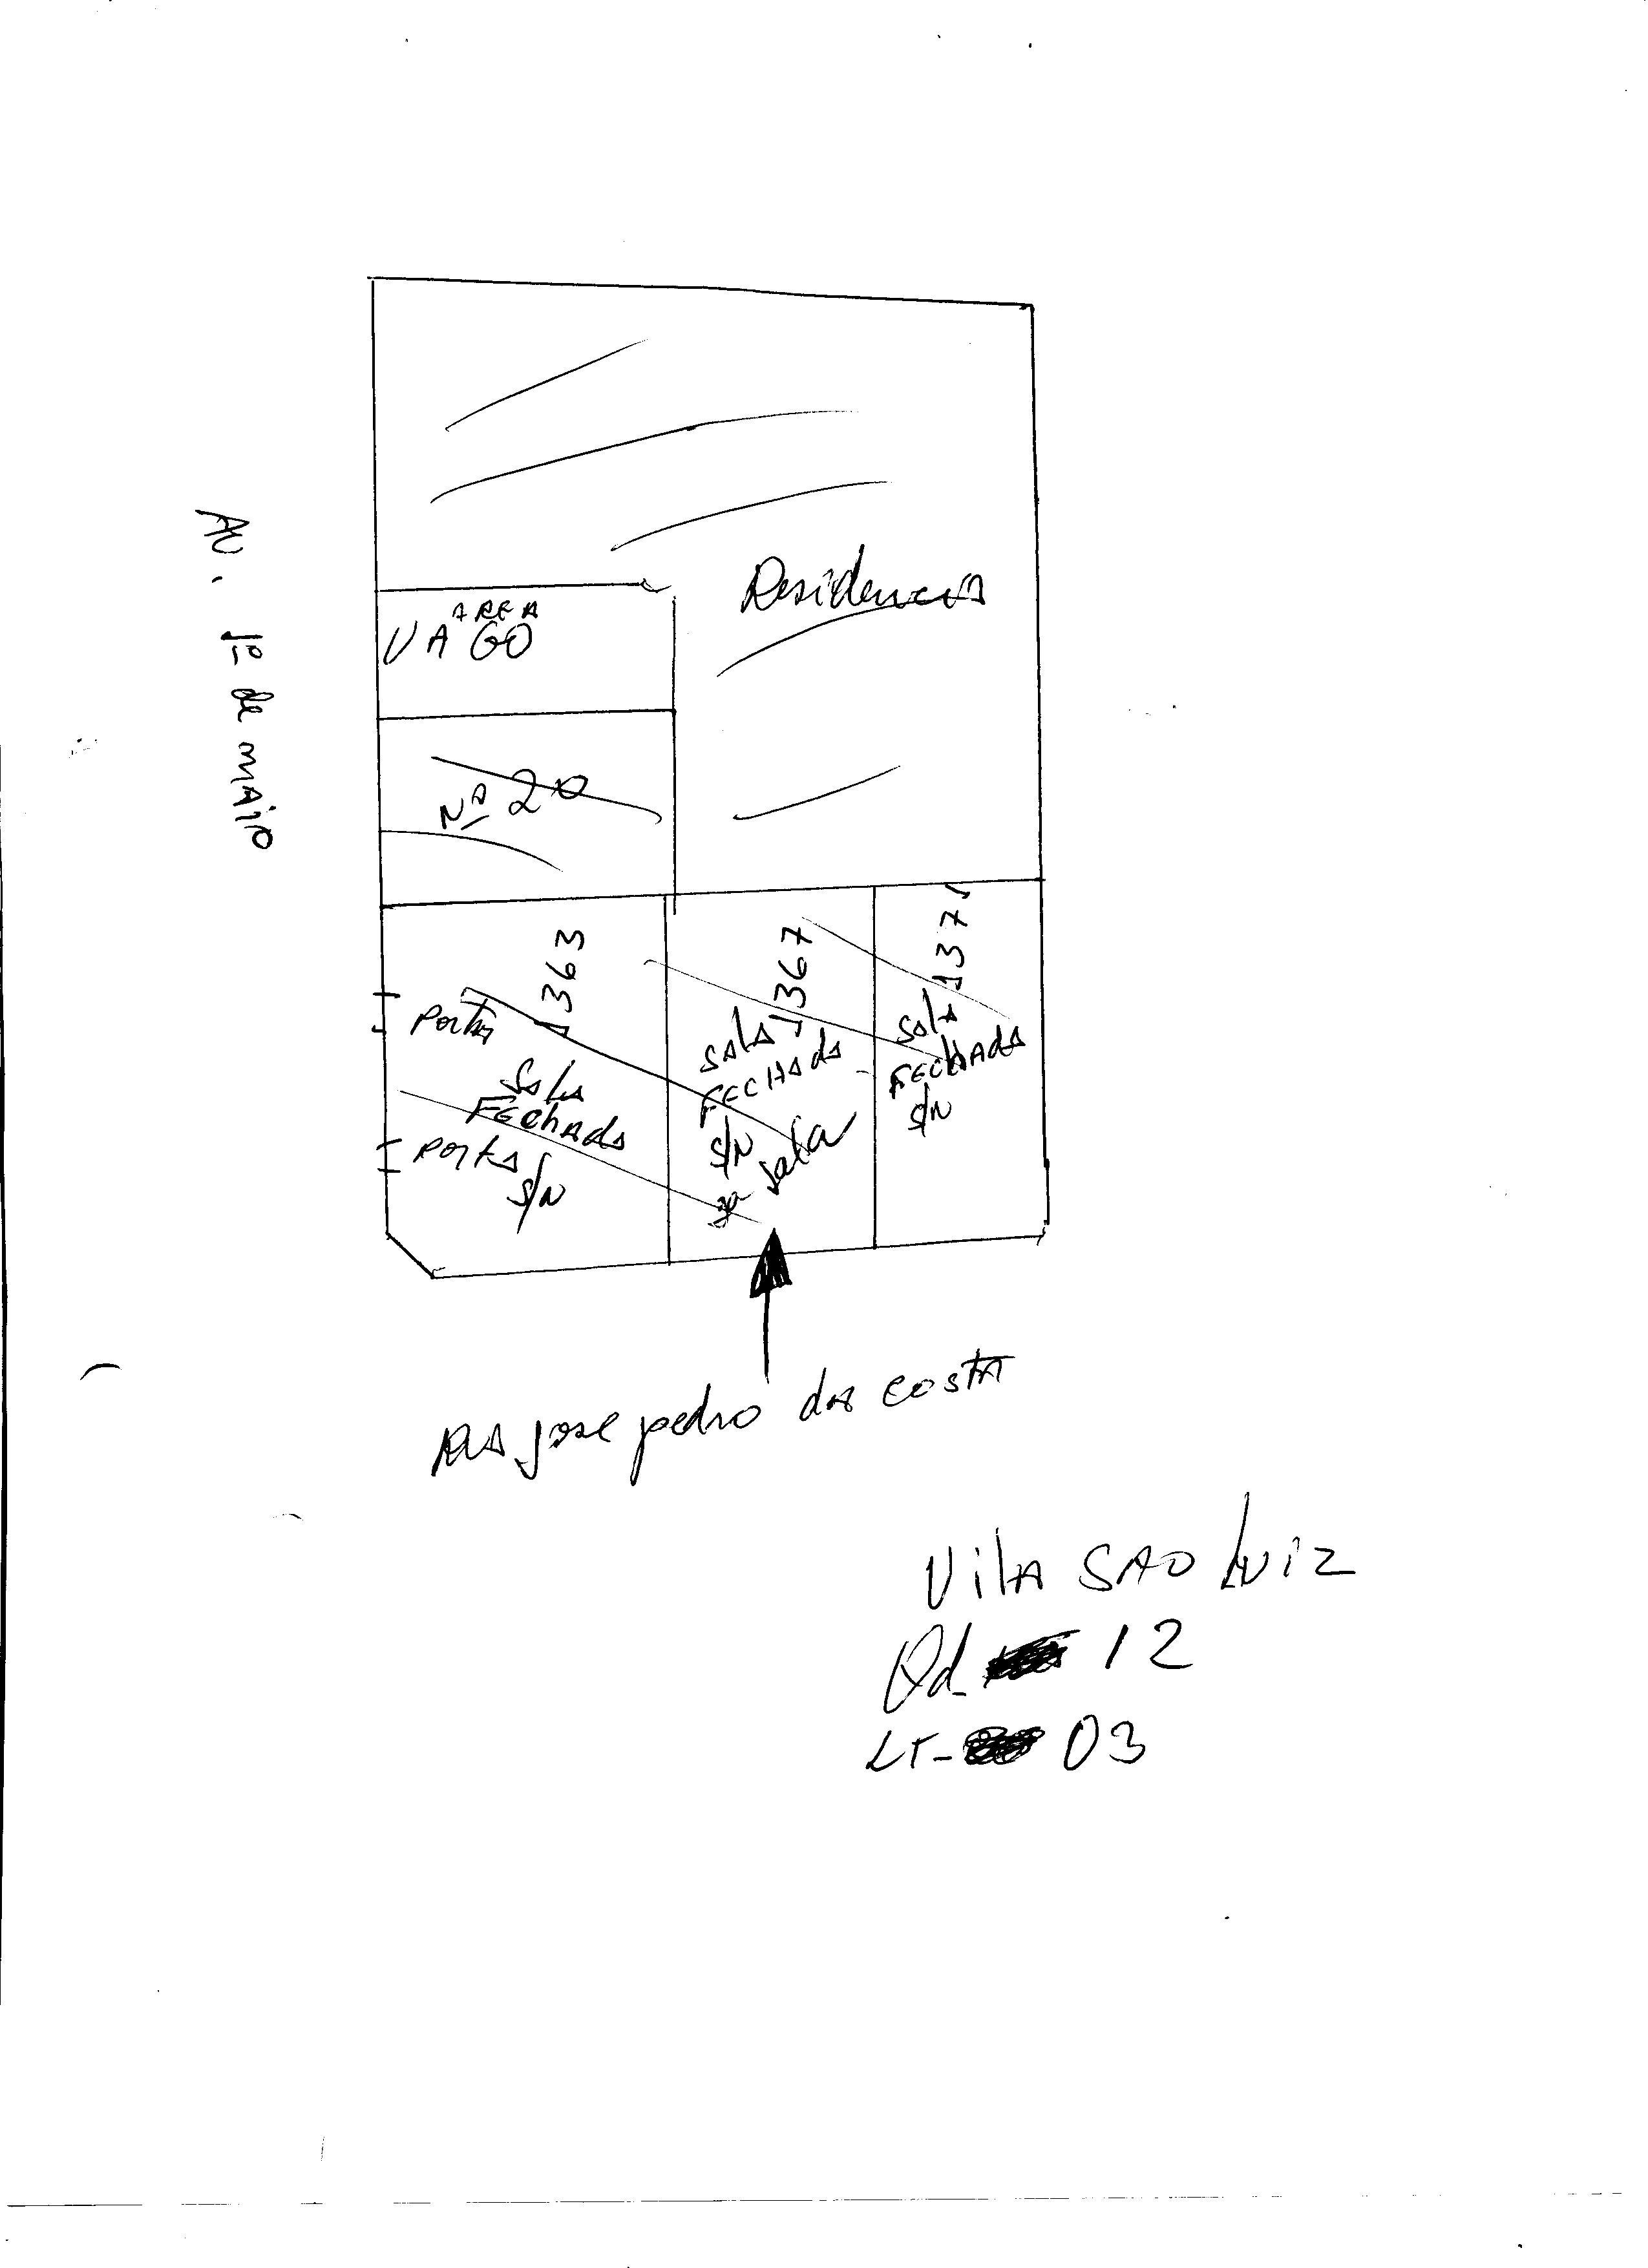 Residencia
AREA
VAGO
Nº 20
AV. 1º de maio
1363
Porta
Sala
FEchada
Porta
S/N
1367
SALA
FECHADA
S/N
sala
1371
Sala
FECHADA
S/N
RUA jose pedro da costa
Vila SAO LUIZ
Qd- 12
LT- 03